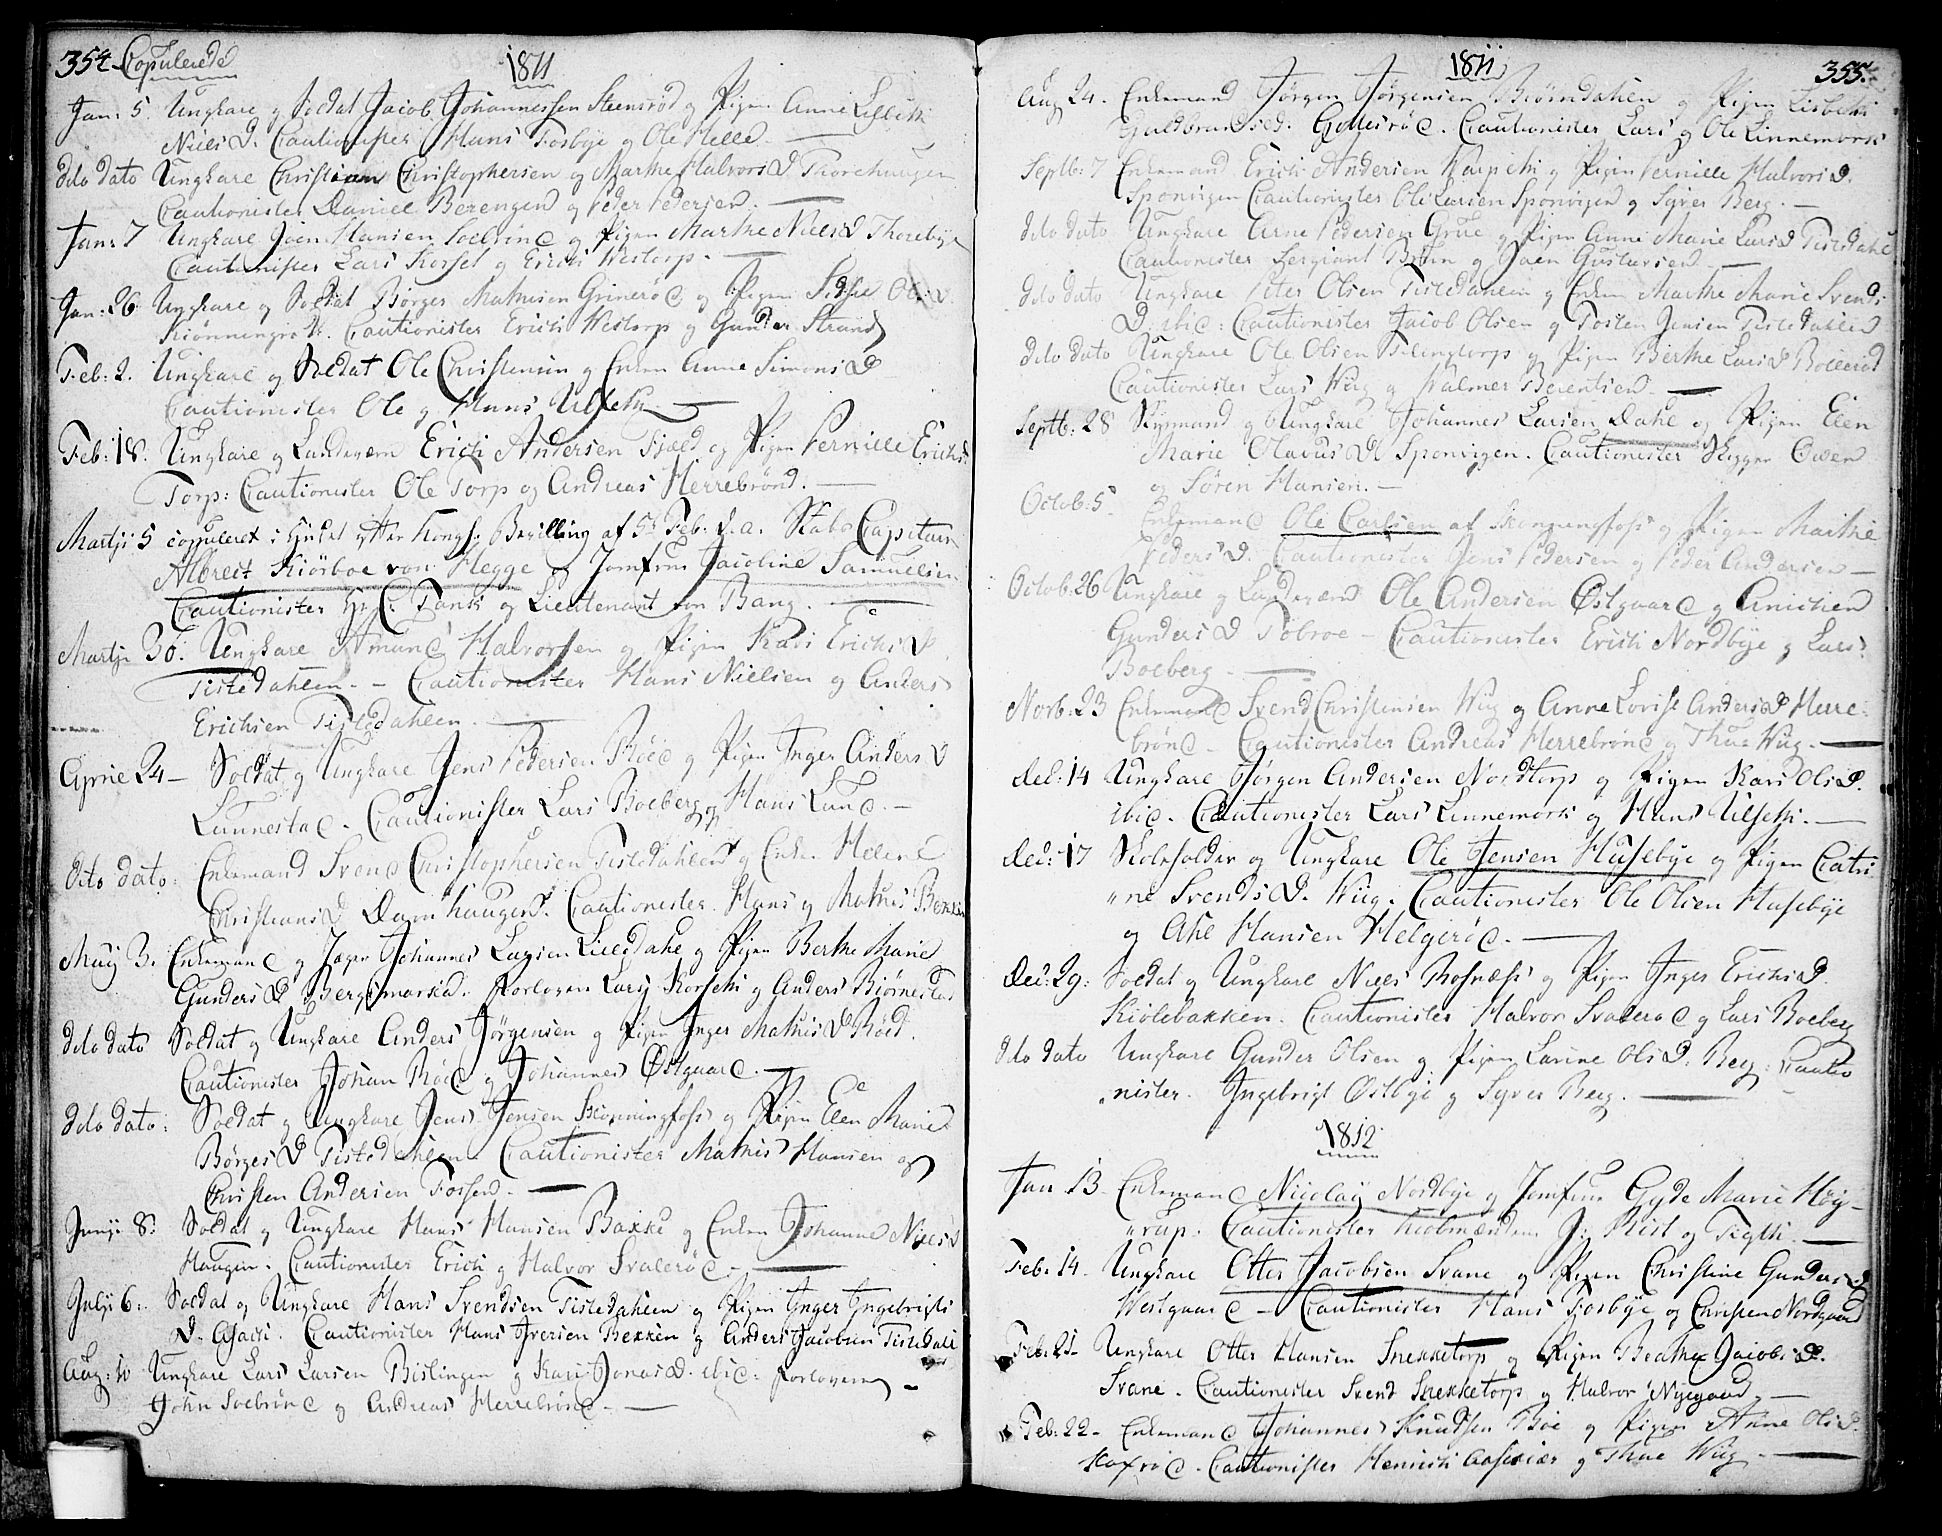 354 Copulerede 1811
Jan: 5 Ungkare og Soldat Jacob Johannessen Steensrød og Pigen Anne Lisbeth
Niels D. Cautionister Hans Fosbye og Ole Helle.
dito dato Ungkare Christian Christophersen og Marthe Halvors D Thorehaugen
Cautionister Daniel Berengend og Peder Pedersen.
Jan: 7 Ungkare Joen Hansen Soebrønd og Pigen Marthe Niels D Thorebye
Cautionister Lars Korset og Erich Westorp.
Jan: 26 Ungkare og Soldat Børger Mathisen Grimerød og Pigen Sidsel Ols D.
Cautionister Erich Westorp og Gunder Strand
Feb: 2. Ungkare og Soldat Ole Christensen og Enken Anne Simons D
Cautionister Ole og Hans Ulseth.
Feb: 18. Ungkare og Landeværn Erich Andersen Fjeld og Pigen Pernille Erichs D
Torp: Cautionister Ole Torp og Andreas Herrebrønd.
Martji 5 copuleret i Huset efter Kongl. Bevilling af 5te Feb. d. a. Stabs Capitain
Albrect Kiörboe von Hegge og Jomfrue Jacoline Samuelsen.
Cautionister Hr C: Tank og Lieutenant von Bang.
Martji 30. Ungkare Amund Halvorsen og Pigen Kari Erichs D.
Tistedahlen. - Cautionister Hans Nielsen og Anders
Erichsen Tistedahlen.
April 24 - Soldat og Ungkare Jens Pedersen Röed og Pigen Inger Anders D
Lunnestad. Cautionister Lars Boeberg og Hans Lund. -
dito dato: Enkemand Svend Christophersen Tistedahlen og Enken Helene
Christians D Damhaugen. Cautionister Hans og Mathis
May 3. Enkemand og Jæger Johannes Larsen Lilledahl og Pigen Berthe Marie
Gunders D Forlovere Lars Korseth og Anders Biørnestad
dito dato Soldat og Ungkare Anders Jørgensen og Pigen Inger Mathis D Röed.
Cautionister Johan Röed og Johannes Østgaard. -
dito dato: Soldat og Ungkare Jens Jensen Skonningfoss og Pigen Elen Marie
Børges D Tistedahlen Cautionister Mathis Hansen og
Christen Andersen Fossen.
Junji 8. Soldat og Ungkare Hans Hansen Bakke og Enken Johanne Niels D
Haugen. Cautionister Erich og Halvor Svalerød.
Julji 6: Soldat og Ungkare Hans Svendsen Tistedahlen og Pigen Inger Ingebrigts
D. Cautionister Hans Iversen Bekken og Anders Jacobsen Tistedahl
Aug: 10 Ungkare Lars Larsen Bislingen og Kari Jonas D. ibid: Forlovere
John Soebrönd og Andreas Herrebrönd.
1811 355.
Aug 24. Enkemand Jörgen Jörgensen Biörndahlen og Pigen Lisbeth
Guldbrands D. Cautionister Lars og Ole Linnemork
Septb: 7 Enkemand Erich Andersen og Pigen Pernille Halvors D.
Sponvigen Cautionister Ole Larsen Sponvigen og Syver Berg. -
dito dato Ungkare Arne Pedersen Grue og Pigen Anne Marie Lars D Tistedahl
Cautionister Sergiant Bruun og Joen Gustavsen
dito dato Ungkare Peter Olsen Tistedahlen og Enken Marthe Marie Svends
D. ibid: Cautionister Jacob Olsen og Tosten Jensen Tistedahlen
dito dato Ungkare Ole Olsen og Pigen Berthe Lars D Bollerød
Cautionister Lars Wiig og Halmer Berentsen.
Septb: 28 Rytmand og Ungkare Johannes Larsen Dahl og Pigen Elen
Marie Olavus D Sponvigen. Cautionister Skipper Owen
og Sören Hansen. -
Octob: 5 Enkemand Ole Carlsen af Skonningfoss og Pigen Marthe
Peders D. Cautionister Jens Pedersen og Peder Andersen -
Octob. 26 Ungkare og Landeværn Ole Andersen Østgaard og Anichen
Gunders D Tobroe - Cautionister Erich Nordbye og Lars
Boeberg
Novb. 23 Enkemand Svend Christensen Wiig og Anne Lovise Anders D Herre-
brönd - Cautionister Andreas Herrebrönd og Thue Wiig.
Dec: 14 Ungkare Jörgen Andersen Nordtorp og Pigen Kari Ols D.
ibid. Cautionister Lars Linnemork og Hans Ulseth.
Dec: 17 Skoleholder og Ungkare Ole Jensen Husebye og Pigen Catri-
"ne Svends D. Wiig. Cautionister Ole Olsen Husebye
og Ahle Hansen Helgeröd.
Dec: 29: Soldat og Ungkare Niels Rosnæss og Pigen Inger Erichs D.
Kiölebakken. Cautionister Halvor Svaleröd og Lars Boeberg
dito dato Ungkare Gunder Olsen og Pigen Larine Ols D. Berg: Cautio
"nister. Ingebrigt Østbye og Syver Berg.
1812
Jan 13 - Enkemand Nicolay Nordbye og Jomfrue Gyde Marie Höy-
"rup. Cautionister Kiøbmændene J: Stist og
Feb: 14 - Ungkare Otter Jacobsen Svane og Pigen Christine Gunders D
Westgaard - Cautionister Hans Fosbye og Christen Nordgaard
Feb: 21 - Ungkare Otter Hansen Snekketorp og Pigen Beathe Jacobs D.
Svane. Cautionister Svend Snekketorp og Halvor Nygaard,
Feb: 22 - Enkemand Johannes Knudsen Böe og Pigen Anne Ols D.
Cautionister Henrich og Thue Wiig